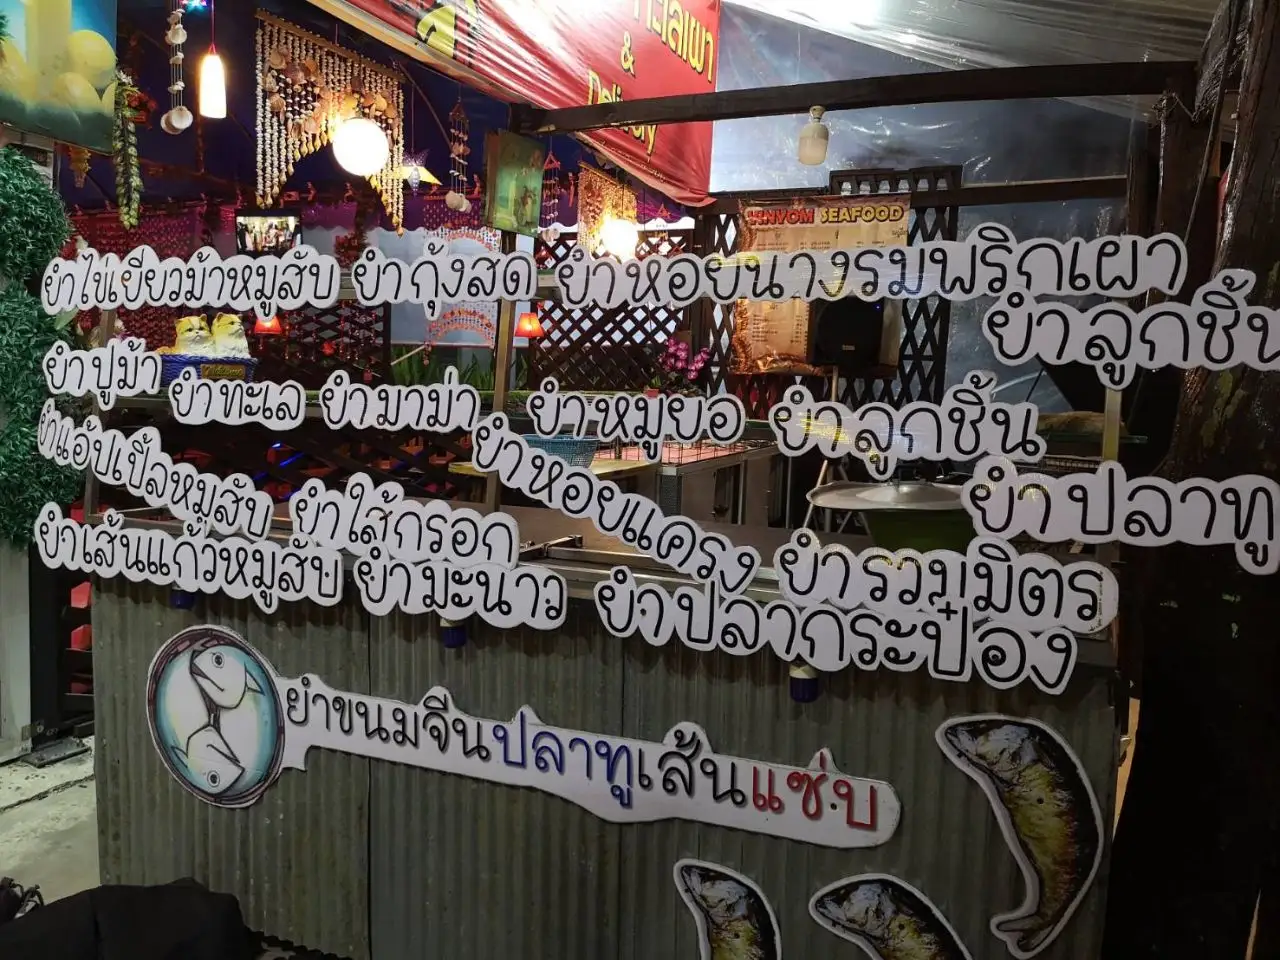 ทะเลเผา
&
Delivery
SEAFOOD
ยำไข่เยียวม้าหมูสับ ยำกุ้งสด ยำหอยนางรมพริกเผา
ยำลูกชิ้น
ยำปูม้า ยำทะเล ยำมาม่า ยำหมูยอ ยำลูกชิ้น
ยำแอ๊ปเปิ้ลหมูสับ ยำใส้กรอก ยำหอยแครง ยำปลาทู
ยำเส้นแก้วหมูสับ ยำมะนาว ยำปลากระป๋อง ยำรวมมิตร
ยำขนมจีนปลาทูเส้นแซ่บ